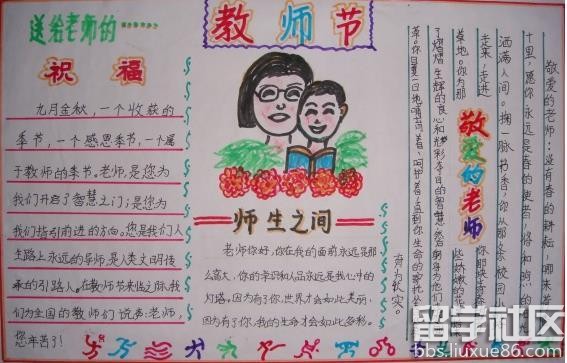 教师节
送给老师的……
祝福
九月金秋，一个收获的
季节，一个感恩季节，一个属
于教师的季节。老师，是您为
我们开启了智慧之门；是您为
我们指引前进的方向。您是我们人
生路上永远的导师，是人类文明传
承的引路人。在教师节来临之际，我
们为全国的教师们说声：老师，
您辛苦了！
师生之间
老师你好，你在我的面前永远是那
么高大，你的学识和人品永远是我心中的
灯塔，因为有了你，世界才会如此美丽，
因为有了你，我的生命才会如此多彩。
敬爱的老师
敬爱的老师：没有春的耕耘，哪来
十里，愿你永远是春的使者，将和煦的
洒满人间。掬一脉书香，你从那条校园小
走来，走进
草地。你为那
些娇嫩的花
留学社区
bbs.liuxue86.com